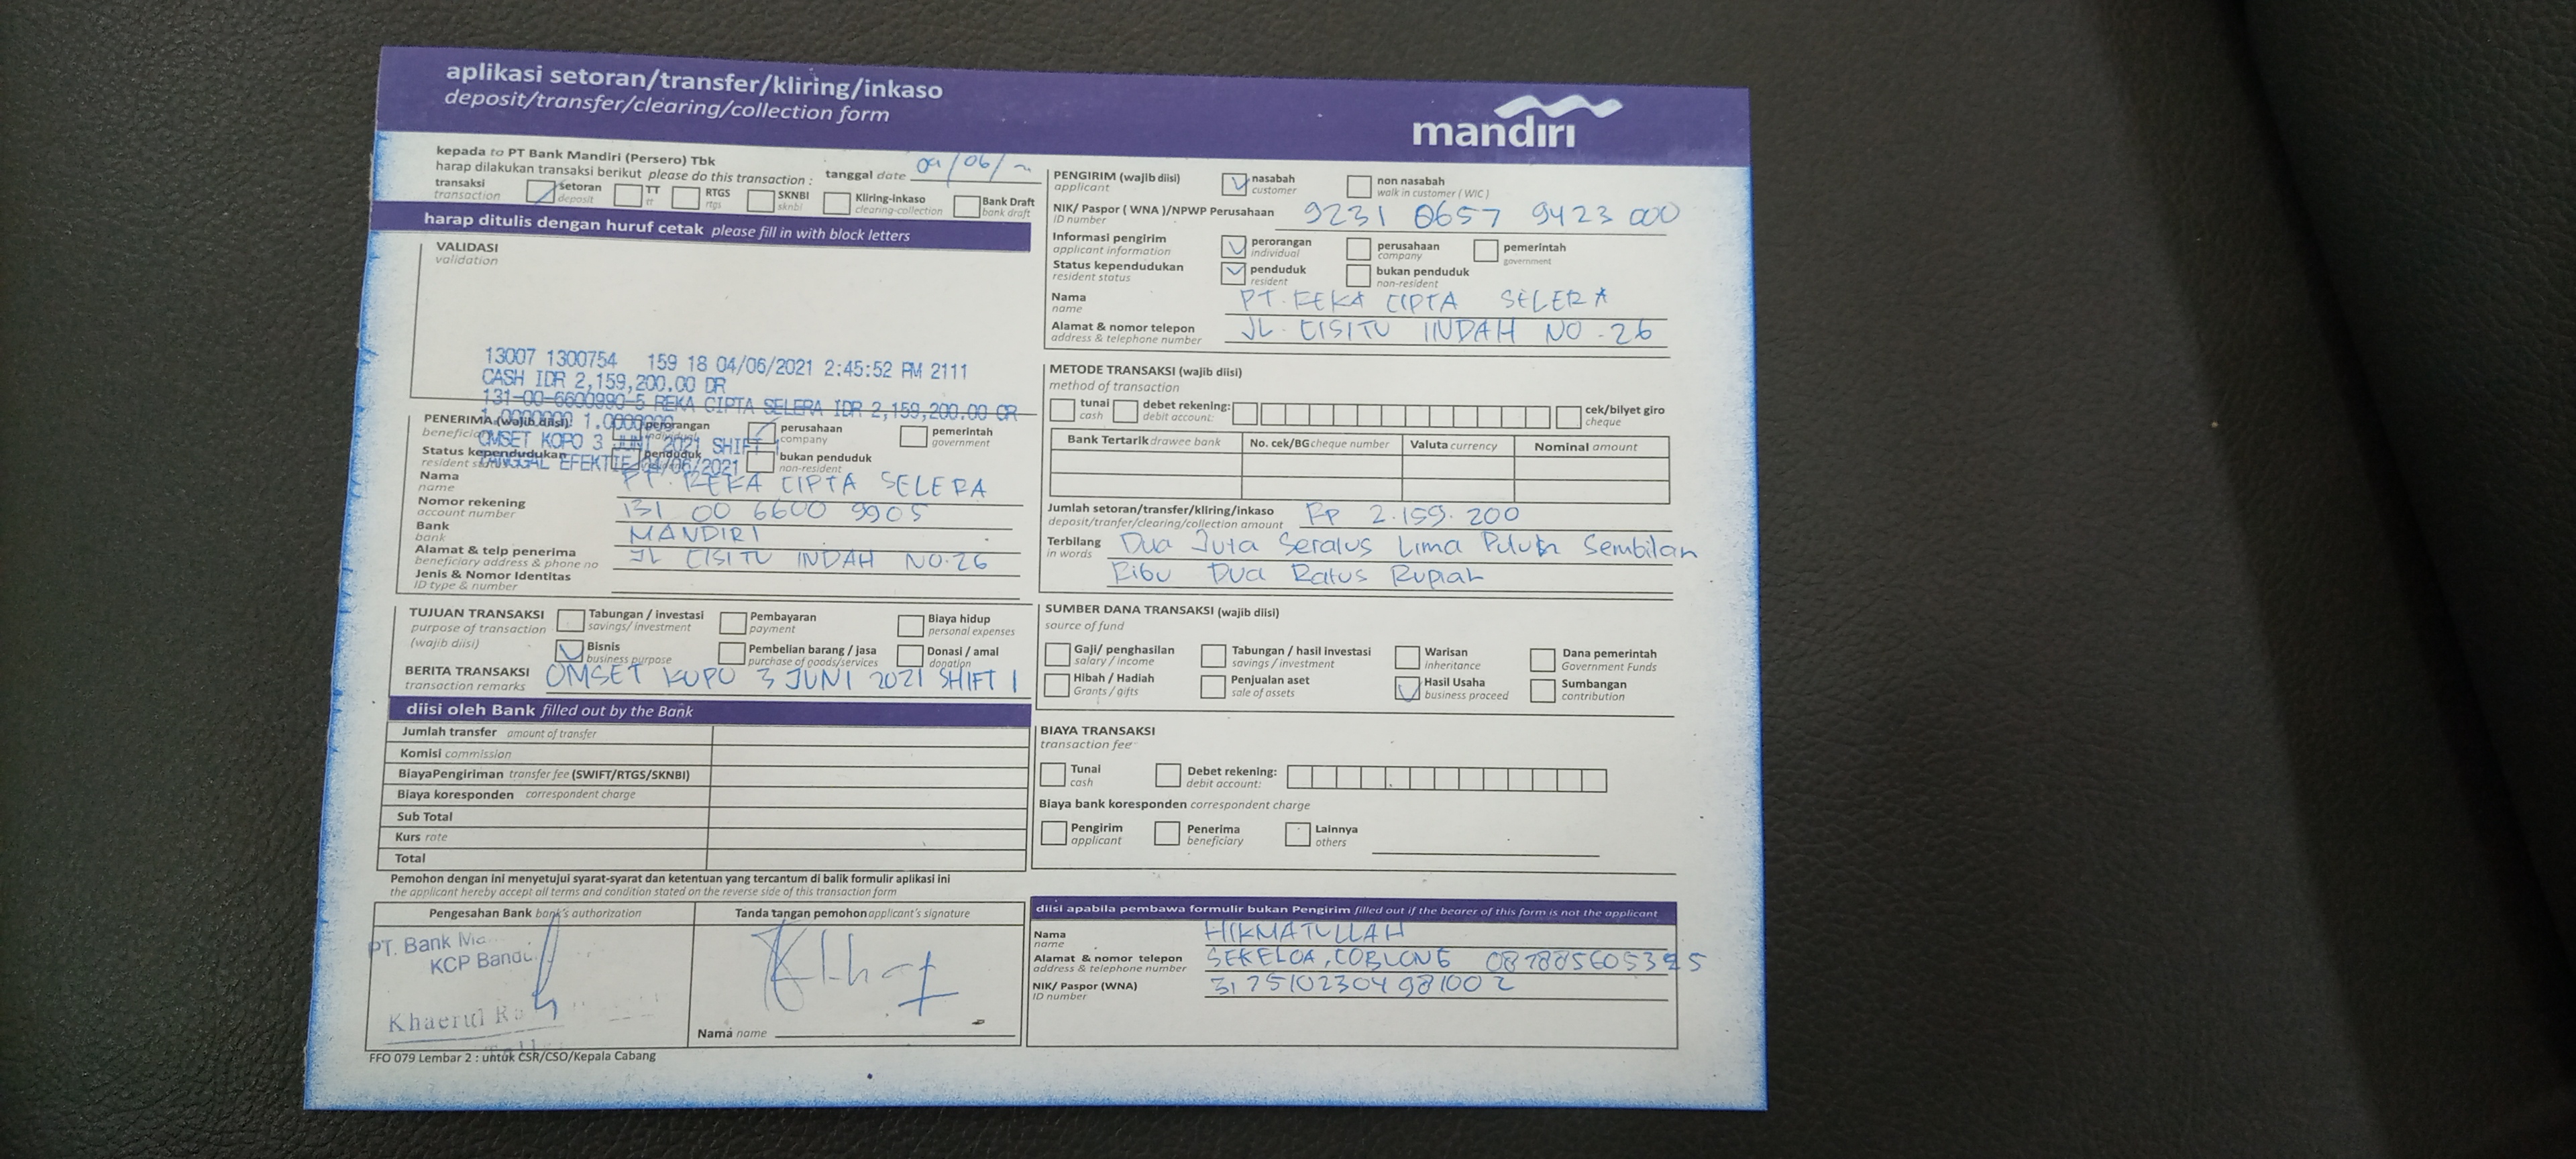 aplikasi setoran/transfer/kliring/inkaso
deposit/transfer/clearing/collection form
mandiri
kepada to PT Bank Mandiri (Persero) Tbk
harap dilakukan transaksi berikut please do this transaction :
tanggal date 04/06/
transaksi transaction
setoran deposit
TT tt
RTGS rtgs
SKNBI sknbi
Kliring-inkaso clearing-collection
Bank Draft bank draft
harap ditulis dengan huruf cetak please fill in with block letters
VALIDASI
validation
13007 1300754 159 18 04/06/2021 2:45:52 PM 2111
CASH IDR 2,159,200.00 DR
131-00-6600990-5 REKA CIPTA SELERA IDR 2,159,200.00 CR
1.0000000 1.0000000
OMSET KOPO 3 JUNI 2021 SHIFT 1
TANGGAL EFEKTIF 04/06/2021
PENERIMA (wajib diisi)
beneficiary
perorangan individual
perusahaan company
pemerintah government
Status kependudukan
resident status
penduduk
bukan penduduk non-resident
Nama name PT. REKA CIPTA SELERA
Nomor rekening account number 131 00 6600 9905
Bank bank MANDIRI
Alamat & telp penerima beneficiary address & phone no JL CISITU INDAH NO.26
Jenis & Nomor Identitas ID type & number
TUJUAN TRANSAKSI
purpose of transaction
(wajib diisi)
Tabungan / investasi savings/ investment
Pembayaran payment
Biaya hidup personal expenses
Bisnis business purpose
Pembelian barang / jasa purchase of goods/services
Donasi / amal donation
BERITA TRANSAKSI transaction remarks OMSET KOPO 3 JUNI 2021 SHIFT 1
diisi oleh Bank filled out by the Bank
Jumlah transfer amount of transfer
Komisi commission
BiayaPengiriman transfer fee (SWIFT/RTGS/SKNBI)
Biaya koresponden correspondent charge
Sub Total
Kurs rate
Total
Pemohon dengan ini menyetujui syarat-syarat dan ketentuan yang tercantum di balik formulir aplikasi ini
the applicant hereby accept all terms and condition stated on the reverse side of this transaction form
Pengesahan Bank bank's authorization
Tanda tangan pemohon applicant's signature
PT. Bank
KCP
Khaerul
Nama name
FFO 079 Lembar 2 : untuk CSR/CSO/Kepala Cabang
PENGIRIM (wajib diisi)
applicant
nasabah customer
non nasabah walk in customer ( WIC )
NIK/ Paspor ( WNA )/NPWP Perusahaan ID number 9231 0657 9423 000
Informasi pengirim
applicant information
perorangan individual
perusahaan company
pemerintah government
Status kependudukan
resident status
penduduk resident
bukan penduduk non-resident
Nama name PT. REKA CIPTA SELERA
Alamat & nomor telepon address & telephone number JL. CISITU INDAH NO.26
METODE TRANSAKSI (wajib diisi)
method of transaction
tunai cash
debet rekening: debit account:
cek/bilyet giro cheque
Bank Tertarik drawee bank
No. cek/BG cheque number
Valuta currency
Nominal amount
Jumlah setoran/transfer/kliring/inkaso
deposit/tranfer/clearing/collection amount
Rp 2.159.200
Terbilang in words Dua Juta Seratus Lima Puluh Sembilan
Ribu Dua Ratus Rupiah
SUMBER DANA TRANSAKSI (wajib diisi)
source of fund
Gaji/ penghasilan salary / income
Tabungan / hasil investasi savings / investment
Warisan inheritance
Dana pemerintah Government Funds
Hibah / Hadiah Grants / gifts
Penjualan aset sale of assets
Hasil Usaha business proceed
Sumbangan contribution
BIAYA TRANSAKSI
transaction fee
Tunai cash
Debet rekening: debit account:
Biaya bank koresponden correspondent charge
Pengirim applicant
Penerima beneficiary
Lainnya others
diisi apabila pembawa formulir bukan Pengirim filled out if the bearer of this form is not the applicant
Nama name HIKMATULLAH
Alamat & nomor telepon address & telephone number SEKELOA, COBLONG
NIK/ Paspor (WNA) ID number 3175102304981002